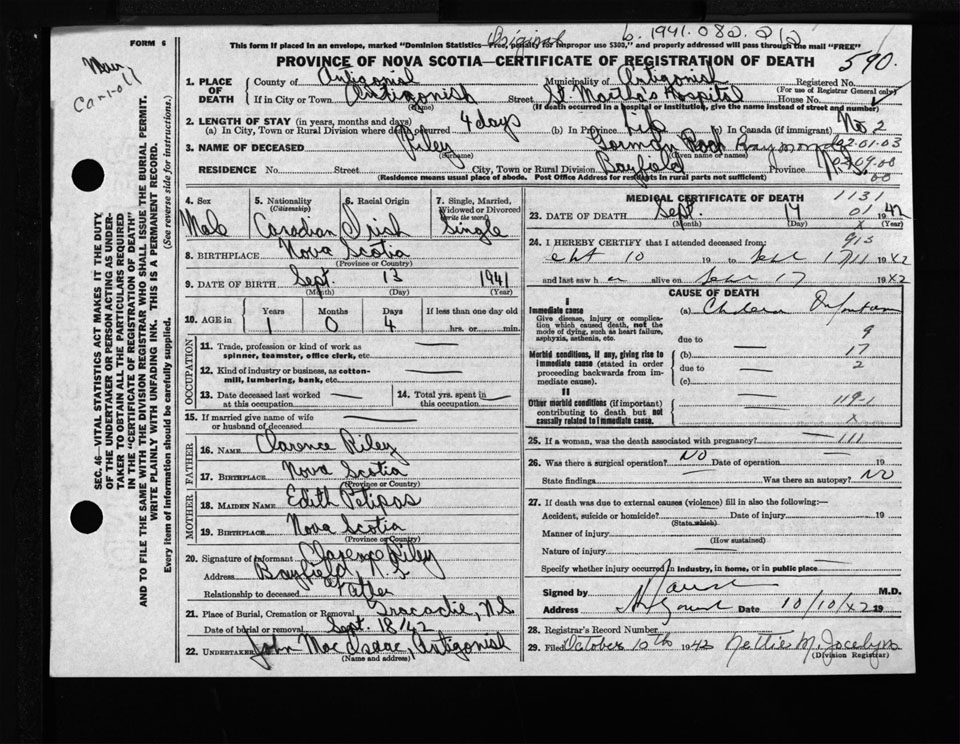 FORM 6
Original
b. 1941.082.212
This form if placed in an envelope, marked "Dominion Statistics—Free, penalty for improper use $300," and properly addressed will pass through the mail "FREE"
PROVINCE OF NOVA SCOTIA—CERTIFICATE OF REGISTRATION OF DEATH
590.
1. PLACE OF DEATH
County of Antigonish Municipality of Antigonish Registered No.
(For use of Registrar General only)
If in City or Town Antigonish Street St. Martha's Hospital House No.
(Name) (If death occurred in a hospital or institution, give the name instead of street and number)
2. LENGTH OF STAY (in years, months and days)
(a) In City, Town or Rural Division where death occurred 4 days (b) In Province Life (c) In Canada (if immigrant) No 2
3. NAME OF DECEASED Riley Gorman Roch Raymond 02.01.03
(Surname) (Given name or names)
RESIDENCE No. Street City, Town or Rural Division Bayfield Province N.S.
(Residence means usual place of abode. Post Office Address for residents in rural parts not sufficient)
4. Sex
Male
5. Nationality (Citizenship)
Canadian
6. Racial Origin
Irish
7. Single, Married, Widowed or Divorced (write the word)
Single
8. BIRTHPLACE Nova Scotia
(Province or Country)
9. DATE OF BIRTH Sept. 13 1941
(Month) (Day) (Year)
10. AGE in
Years Months Days If less than one day old
1 0 4 hrs. or min.
OCCUPATION
11. Trade, profession or kind of work as spinner, teamster, office clerk, etc.
12. Kind of industry or business, as cotton-mill, lumbering, bank, etc.
13. Date deceased last worked at this occupation
14. Total yrs. spent in this occupation
15. If married give name of wife or husband of deceased
FATHER
16. NAME Clarence Riley
17. BIRTHPLACE Nova Scotia
(Province or Country)
MOTHER
18. MAIDEN NAME Edith Petipas
19. BIRTHPLACE Nova Scotia
(Province or Country)
20. Signature of informant Clarence Riley
Address Bayfield N.S.
Relationship to deceased Father
21. Place of Burial, Cremation or Removal Tracadie, N.S.
Date of burial or removal Sept. 18/42
22. UNDERTAKER John MacIsaac, Antigonish
(Name and address)
MEDICAL CERTIFICATE OF DEATH
1131
23. DATE OF DEATH Sept. 17 1942
(Month) (Day) (Year)
24. I HEREBY CERTIFY that I attended deceased from:
Sept 10 19 to Sept 17 1942
and last saw h alive on Sept 17 1942
CAUSE OF DEATH
I
Immediate cause
Give disease, injury or complication which caused death, not the mode of dying, such as heart failure, asphyxia, asthenia, etc.
(a) Cholera Infantum
due to
Morbid conditions, if any, giving rise to immediate cause (stated in order proceeding backwards from immediate cause).
(b)
due to
(c)
II
Other morbid conditions (if important) contributing to death but not causally related to immediate cause.
1191
25. If a woman, was the death associated with pregnancy?
111
26. Was there a surgical operation? NO Date of operation 19
State findings Was there an autopsy? NO
27. If death was due to external causes (violence) fill in also the following:—
Accident, suicide or homicide? Date of injury 19
(State which)
Manner of injury
(How sustained)
Nature of injury
Specify whether injury occurred in industry, in home, or in public place
Signed by M.D.
Address Date 10/10/42 19
28. Registrar's Record Number
29. Filed October 10th 1942 Nettie M. Jocelyn
(Division Registrar)
SEC. 46—VITAL STATISTICS ACT MAKES IT THE DUTY, OF THE UNDERTAKER OR PERSON ACTING AS UNDERTAKER TO OBTAIN ALL THE PARTICULARS REQUIRED IN THE "CERTIFICATE OF REGISTRATION OF DEATH" AND TO FILE THE SAME WITH THE DIVISION REGISTRAR WHO SHALL ISSUE THE BURIAL PERMIT.
WRITE PLAINLY WITH UNFADING INK. THIS IS A PERMANENT RECORD.
Every item of information should be carefully supplied. (See reverse side for instructions.)